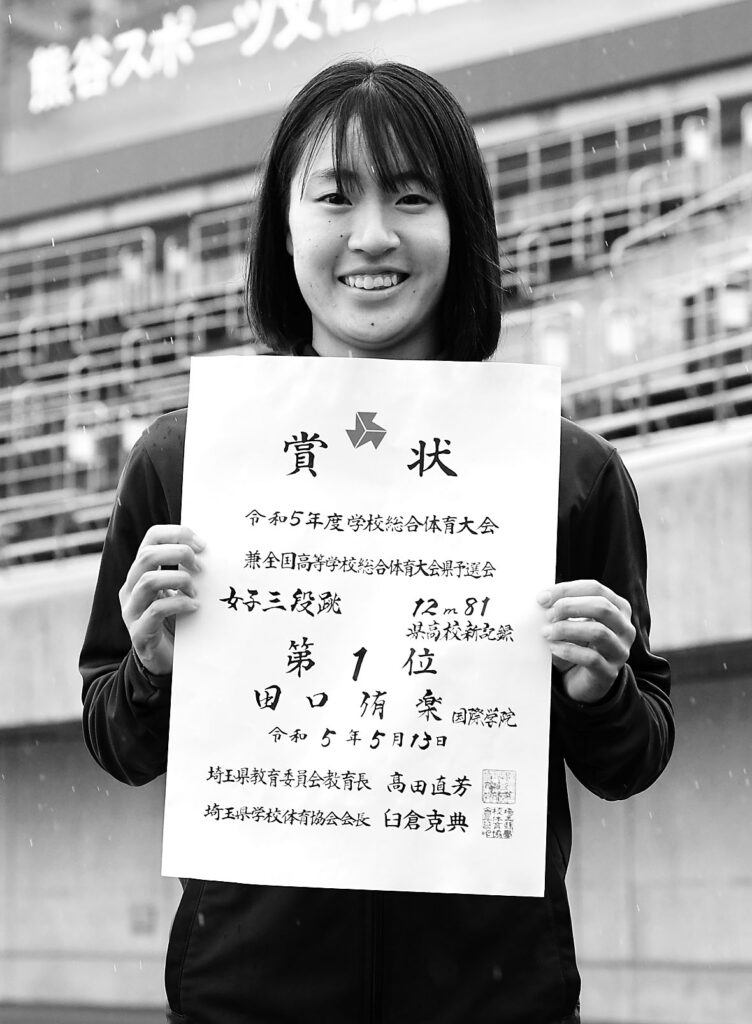 熊谷スポーツ文化公
賞 状
令和5年度学校総合体育大会
兼全国高等学校総合体育大会県予選会
女子三段跳 12m81
県高校新記録
第1位
田口侑楽 国際学院
令和5年5月13日
埼玉県教育委員会教育長 髙田直芳
埼玉県学校体育協会会長 臼倉克典